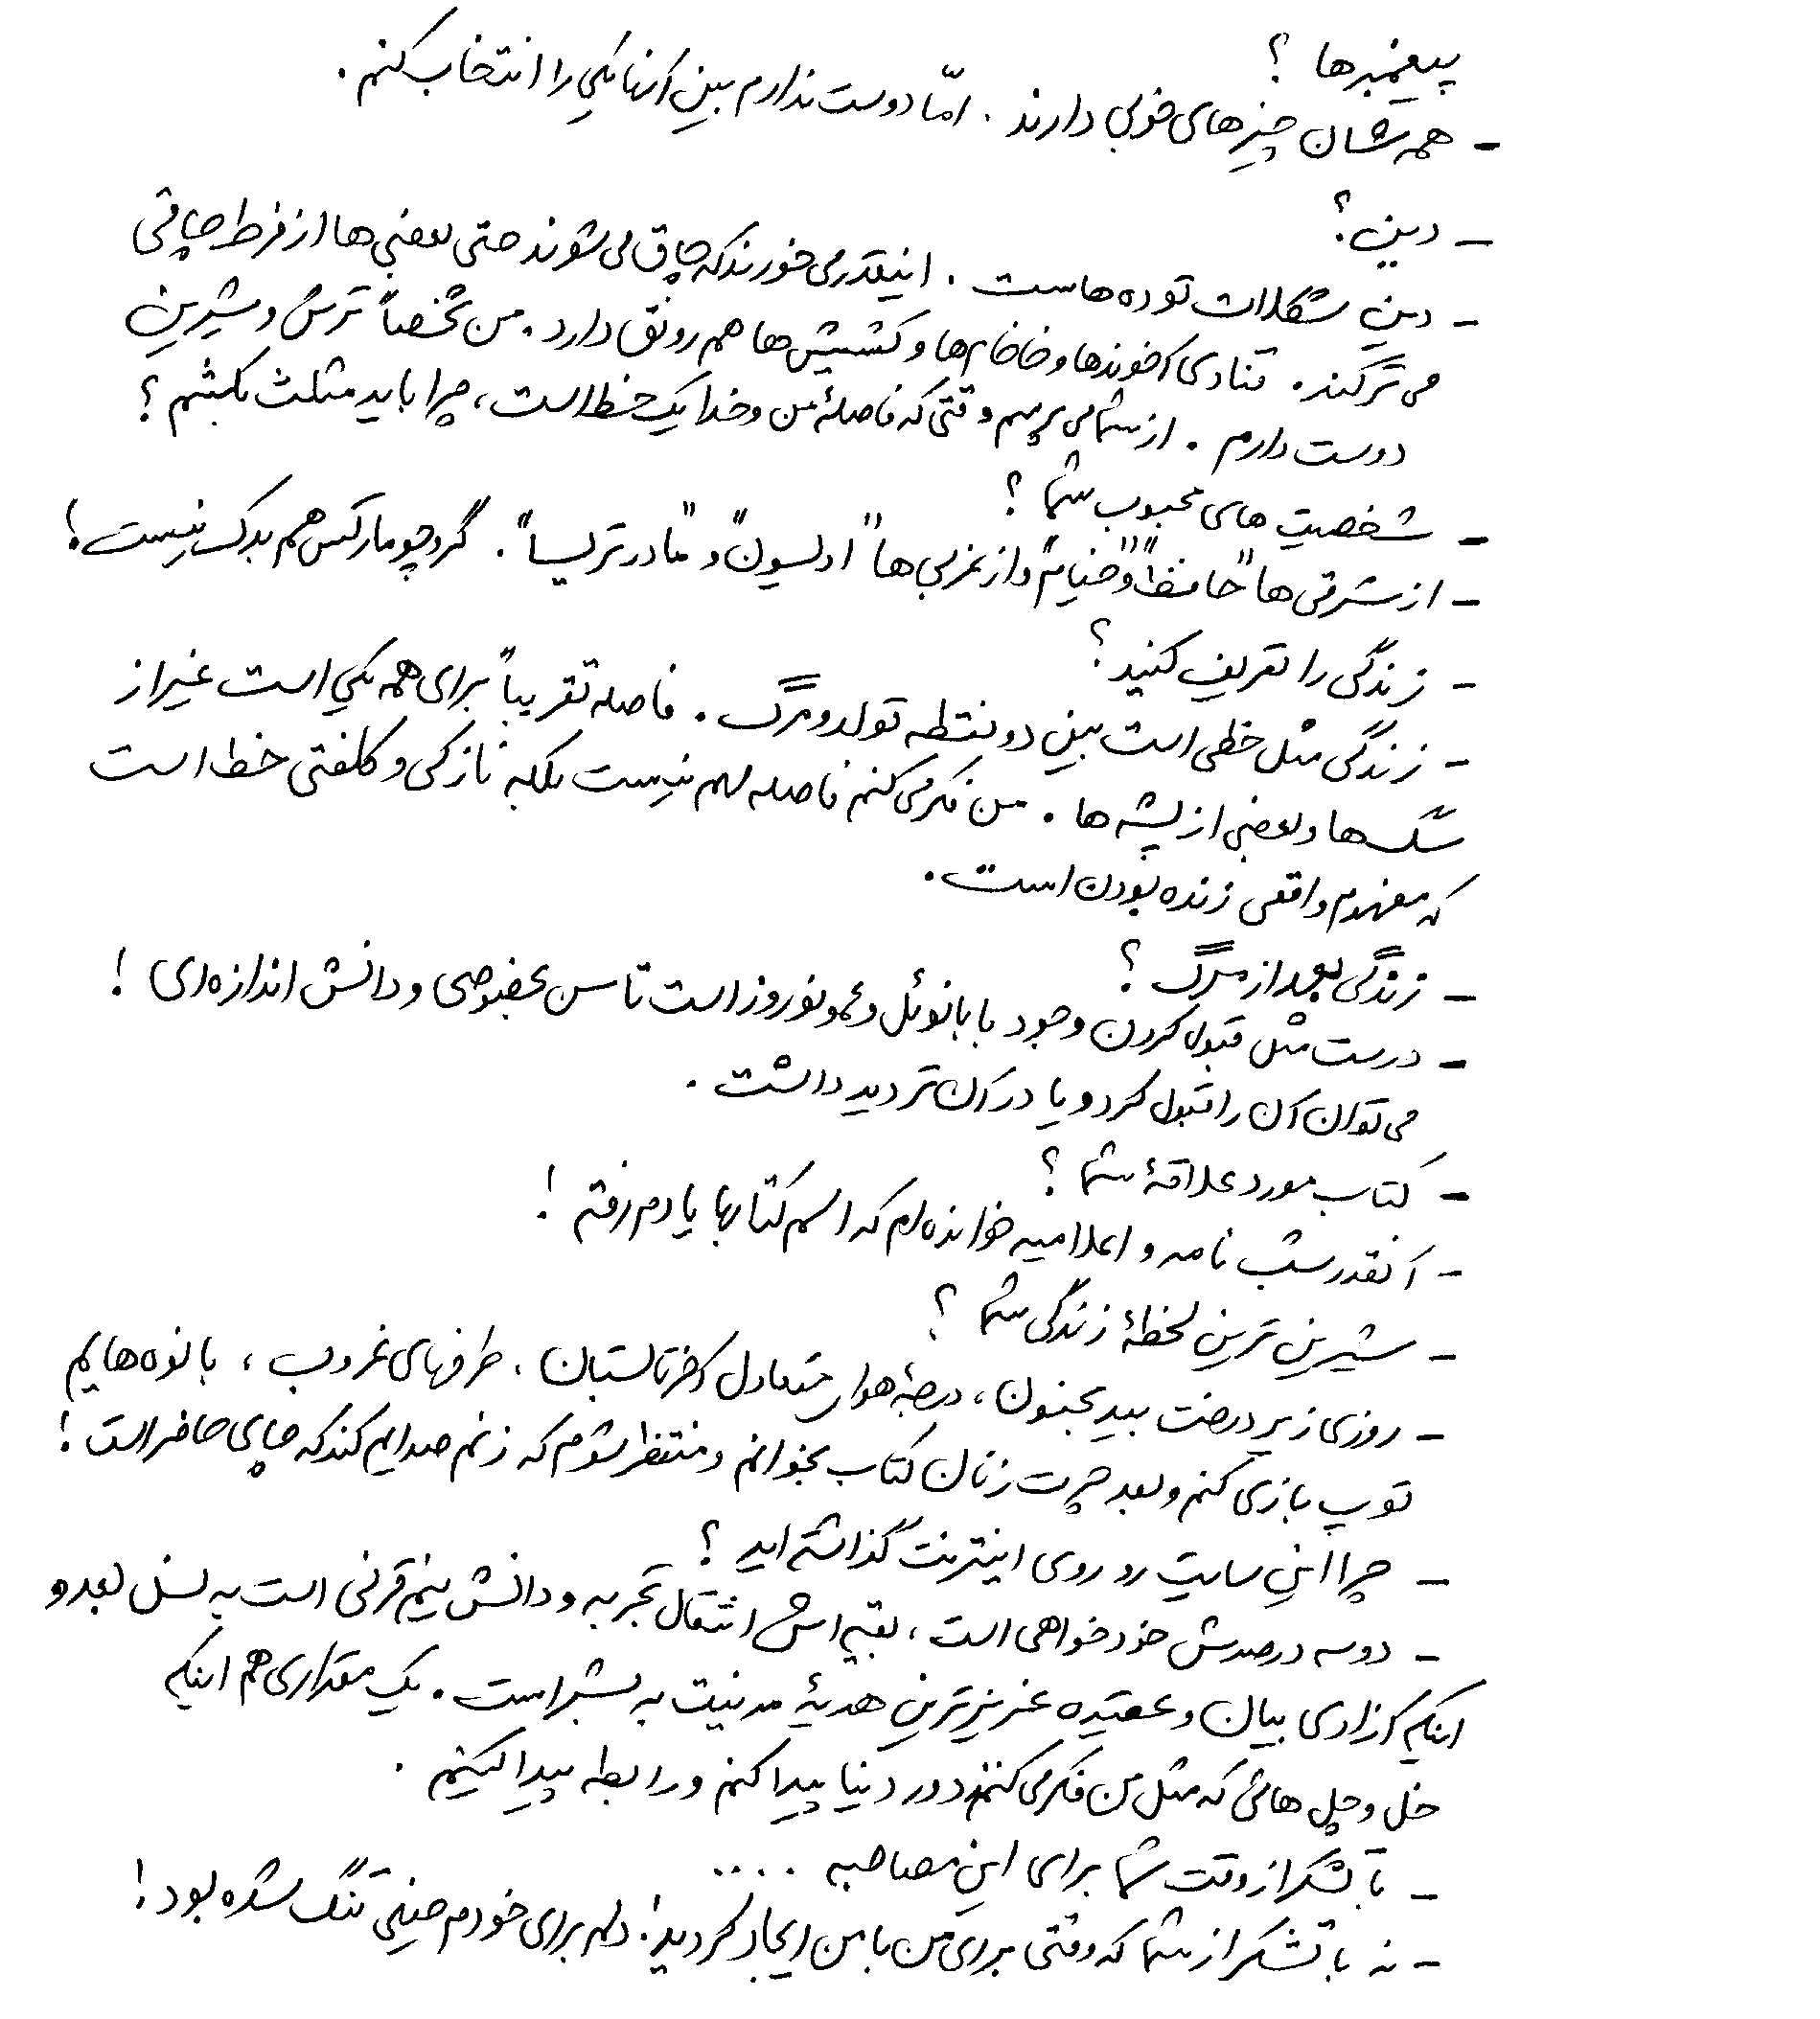 پیغمبرها ؟
- همه شان چیزهای خوبی دارند . امّا دوست ندارم بین آنها یکی را انتخاب کنم .
- دین ؟
- دین شکلات توده هاست . اینقدر می خورند که چاق می شوند حتی بعضی ها از فرط چاقی
می ترکند . قنادی آخوندها و خاخام ها و کشیش ها هم رونق دارد . من شخصاً ترش و شیرین
دوست دارم . از شما می پرسم وقتی که فاصلهٔ من و خدا یک خط است ، چرا باید مثلث بکشم ؟
- شخصیت های محبوب شما ؟
- از شرقی ها "حافظ" و "خیام" و از غربی ها "ادیسون" و "مادر ترسا" . گروچو مارکس هم بدک نیست !
- زندگی را تعریف کنید ؟
- زندگی مثل خطی است بین دو نقطه تولد و مرگ . فاصله تقریباً برای همه یکی است غیر از
سگ ها و بعضی از پشه ها . من فکر می کنم فاصله مهم نیست بلکه نازکی و کلفتی خط است
که مفهوم واقعی زنده بودن است .
- زندگی بعد از مرگ ؟
- درست مثل قبول کردن وجود بابانوئل و عمو نوروز است تا سن بخصوصی و دانش اندازه ای !
می توان آن را قبول کرد و یا در آن تردید داشت .
- کتاب مورد علاقهٔ شما ؟
- آنقدر شب نامه و اعلامیه خوانده ام که اسم کتابها یادم رفته !
- شیرین ترین لحظهٔ زندگی شما ؟
- روزی زیر درخت بید مجنون ، درجهٔ هوا متعادل آخر تابستان ، طرفهای غروب ، با نوه هایم
توپ بازی کنم و بعد چرت زنان کتاب بخوانم و منتظر شوم که زنم صدایم کند که چای حاضر است !
- چرا این سایت رو روی اینترنت گذاشته اید ؟
- دو سه درصدش خودخواهی است ، بقیه اش انتقال تجربه و دانش نیم قرنی است به نسل بعد و
اینکه آزادی بیان و عقیده عزیزترین هدیهٔ مدنیت به بشر است . یک مقداری هم اینکه
خل و چل هائی که مثل من فکر می کنند دور دنیا پیدا کنم و رابطه پیدا کنیم .
- با تشکر از وقت شما برای این مصاحبه ....
- نه با تشکر از شما که وقتی برای من با من ایجاد کردید ! دلم برای خودم خیلی تنگ شده بود !